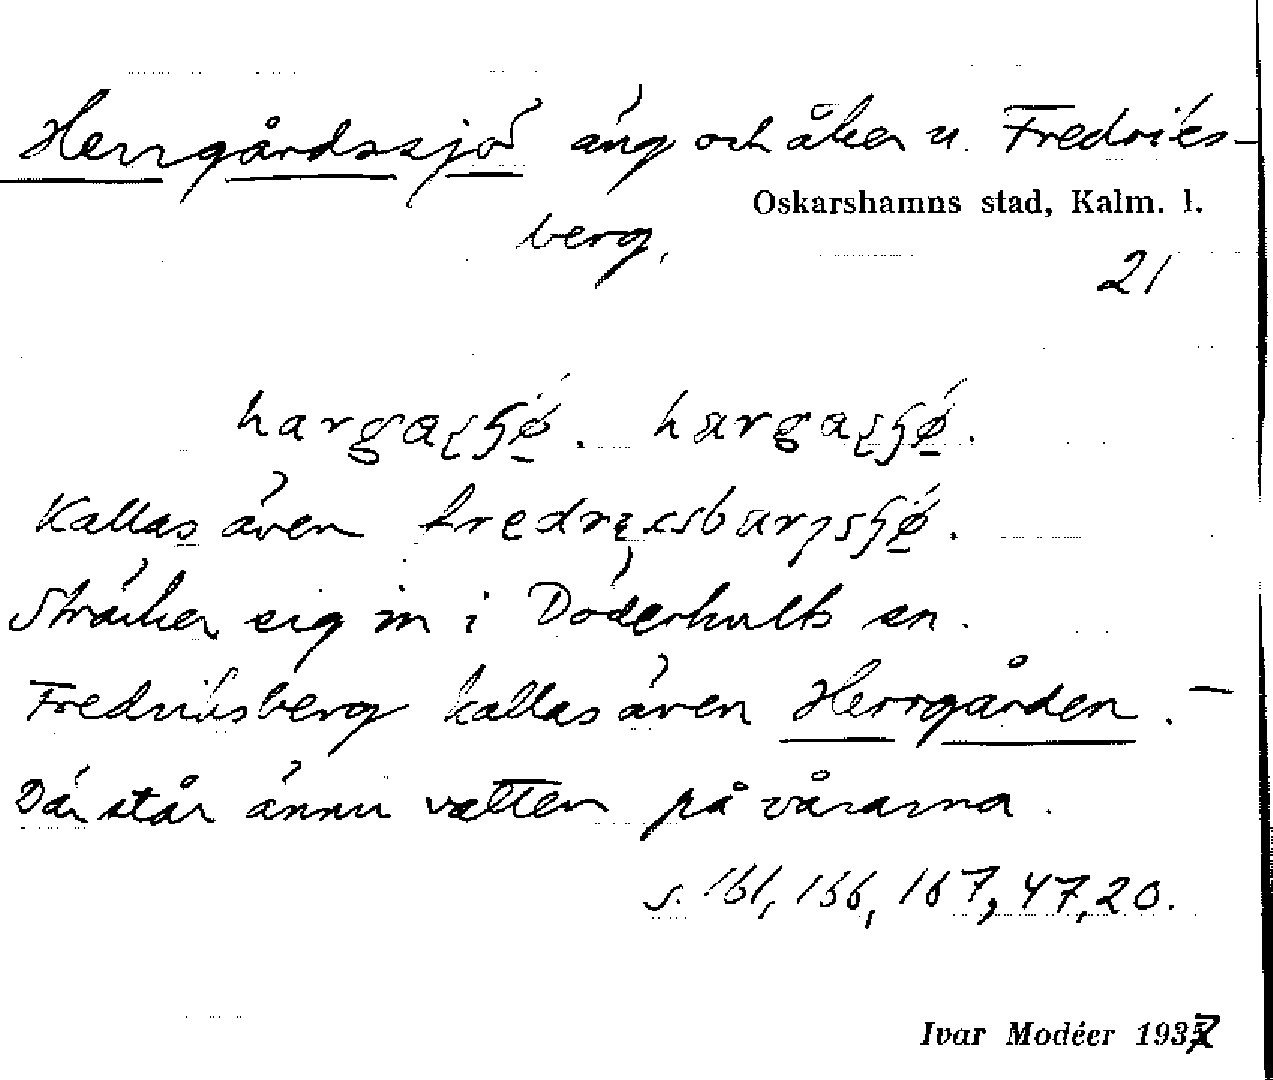 Herrgårdssjö äng och åker u. Fredriks-
Oskarshamns stad, Kalm. l.
berg.
21
Kallas även
Sträcker sig in i Döderhults sn.
Fredriksberg kallas även Herrgården. –
Där står ännu vatten på vårarna.
s. 161, 166, 167, 47, 20.
Ivar Modéer 1937